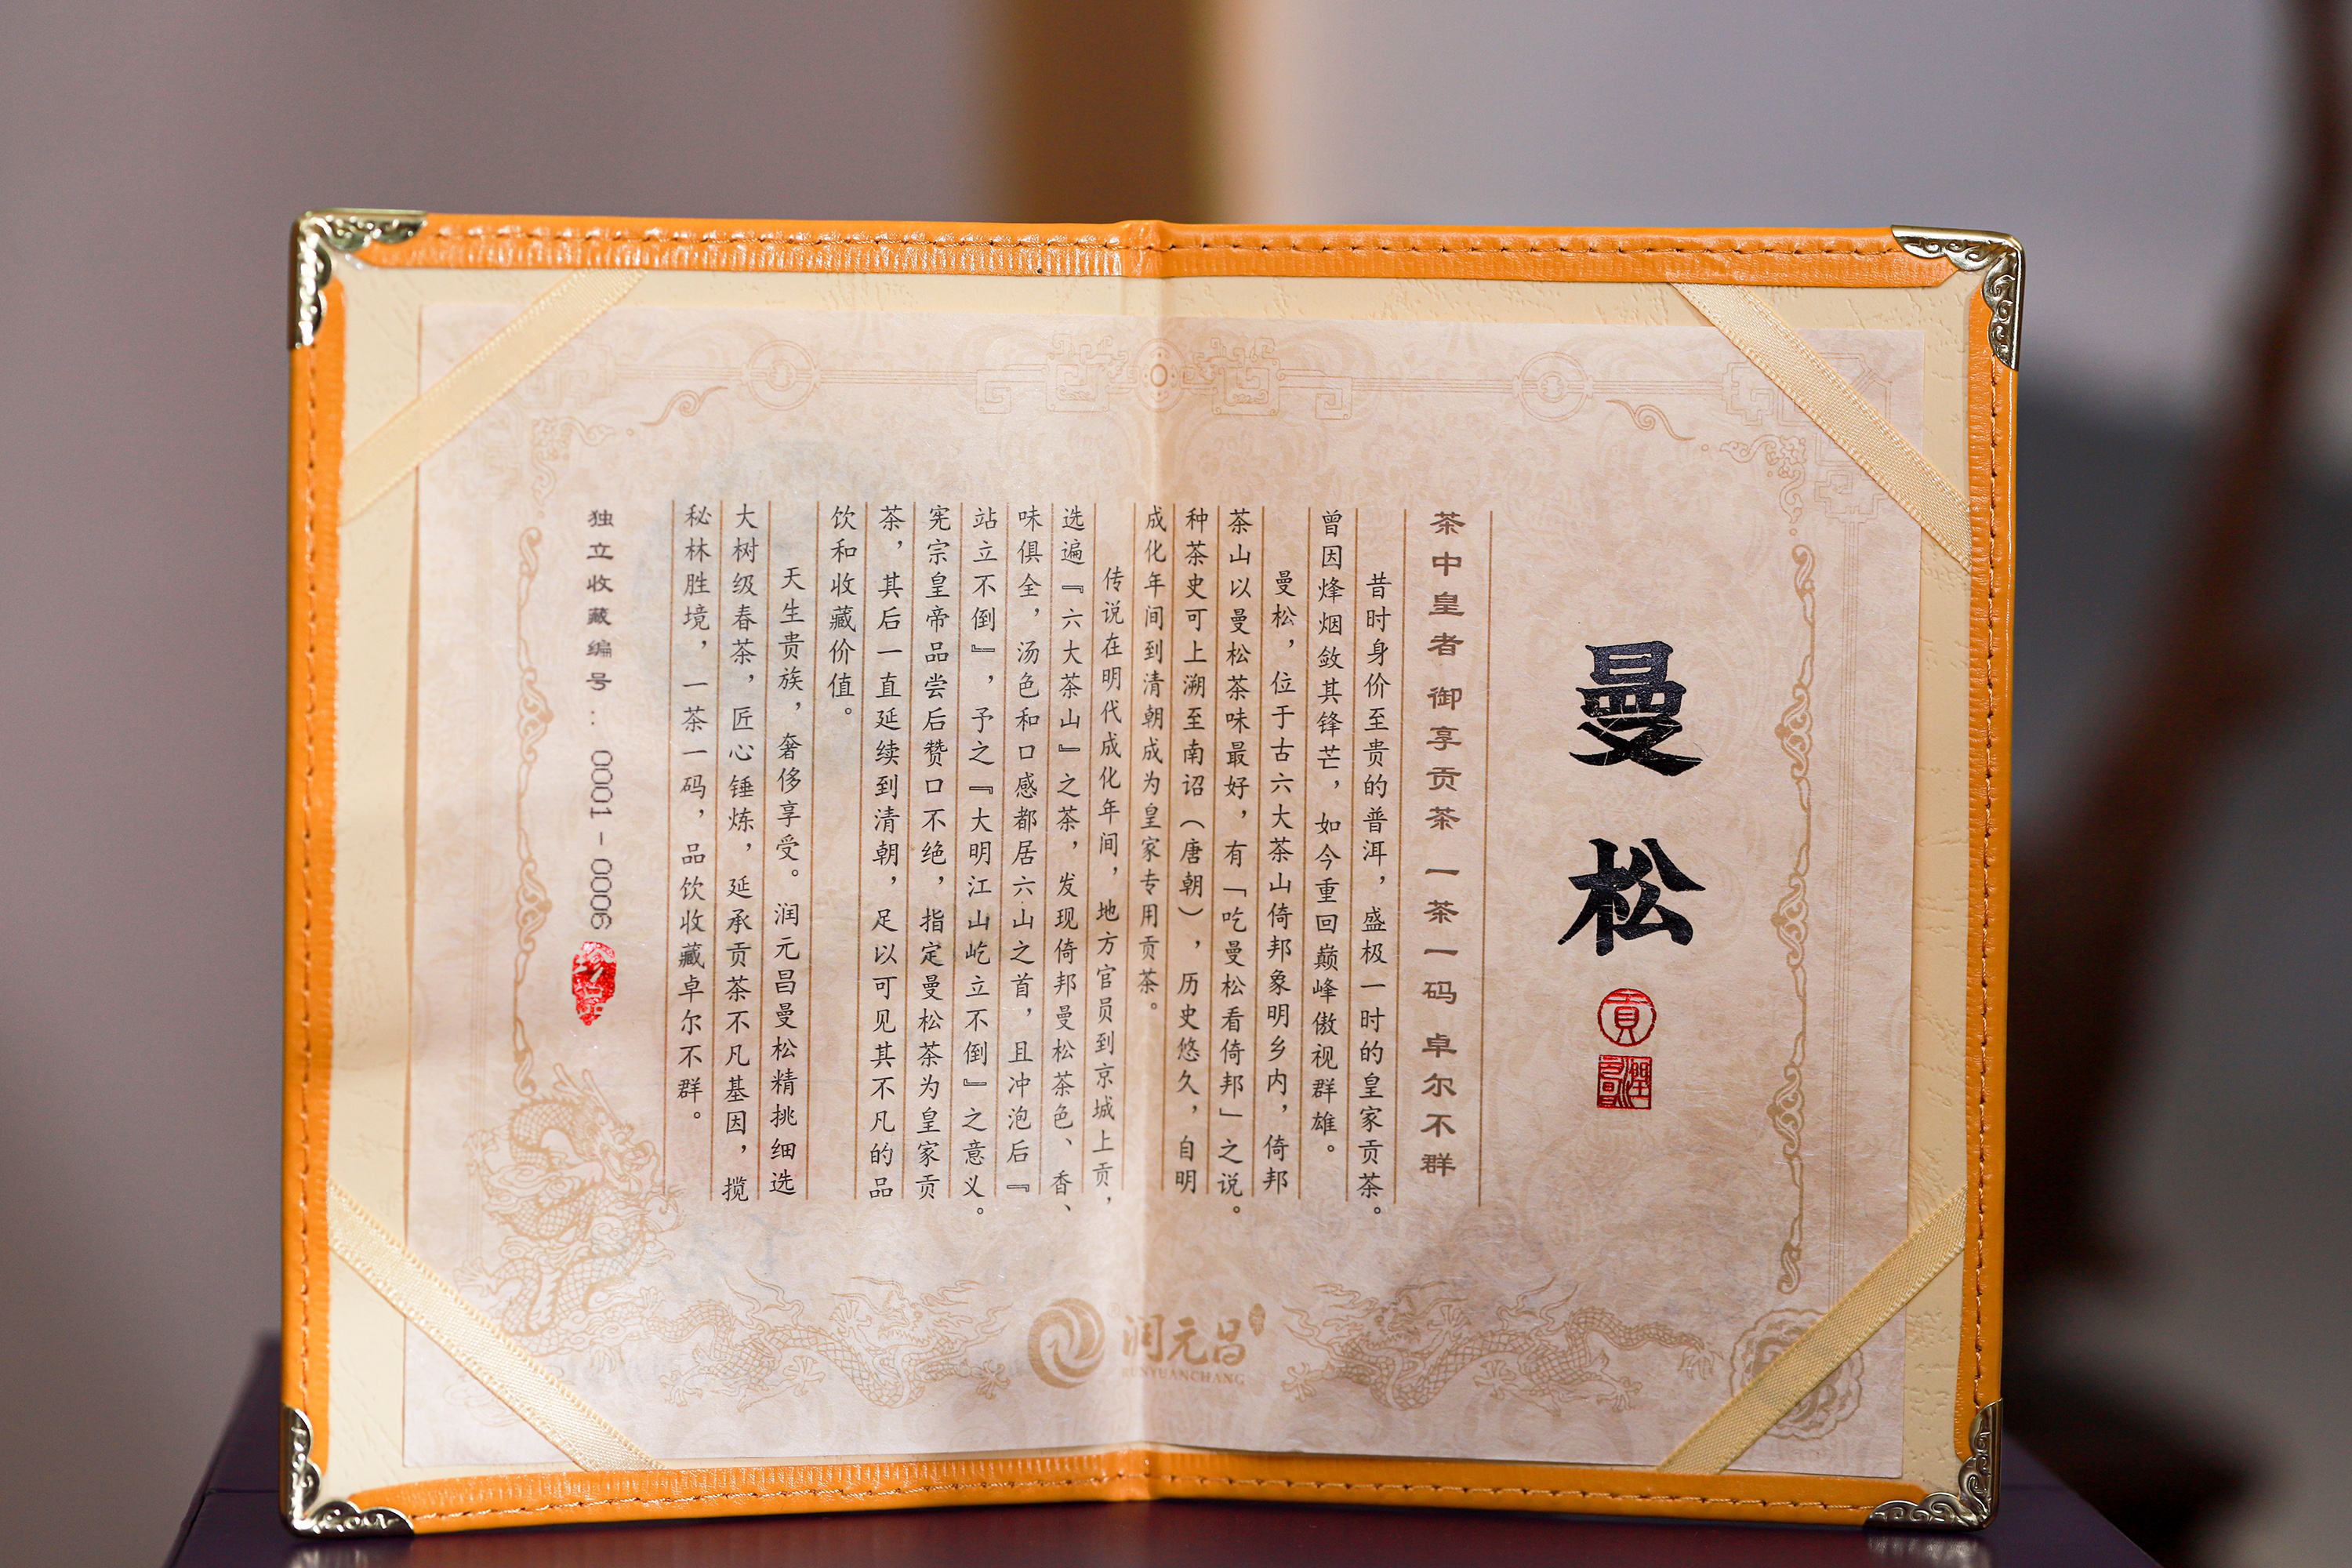 曼松
貢
潤
茶中皇者 御享贡茶 一茶一码 卓尔不群
昔时身价至贵的普洱，盛极一时的皇家贡茶。
曾因烽烟敛其锋芒，如今重回巅峰傲视群雄。
曼松，位于古六大茶山倚邦象明乡内，倚邦
茶山以曼松茶味最好，有「吃曼松看倚邦」之说。
种茶史可上溯至南诏（唐朝），历史悠久，自明
成化年间到清朝成为皇家专用贡茶。
传说在明代成化年间，地方官员到京城上贡，
选遍『六大茶山』之茶，发现倚邦曼松茶色、香、
味俱全，汤色和口感都居六山之首，且冲泡后『
站立不倒』，予之『大明江山屹立不倒』之意义。
宪宗皇帝品尝后赞口不绝，指定曼松茶为皇家贡
茶，其后一直延续到清朝，足以可见其不凡的品
饮和收藏价值。
天生贵族，奢侈享受。润元昌曼松精挑细选
大树级春茶，匠心锤炼，延承贡茶不凡基因，揽
秘林胜境，一茶一码，品饮收藏卓尔不群。
独立收藏编号：0001-0006
润元昌
RUNYUANCHANG